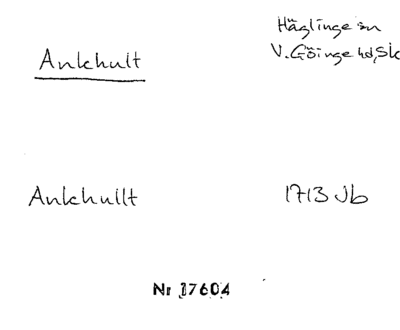 Ankhult
Häglinge sn
V. Göinge hd, Sk
Ankhullt
1713 Jb
Nr 17604